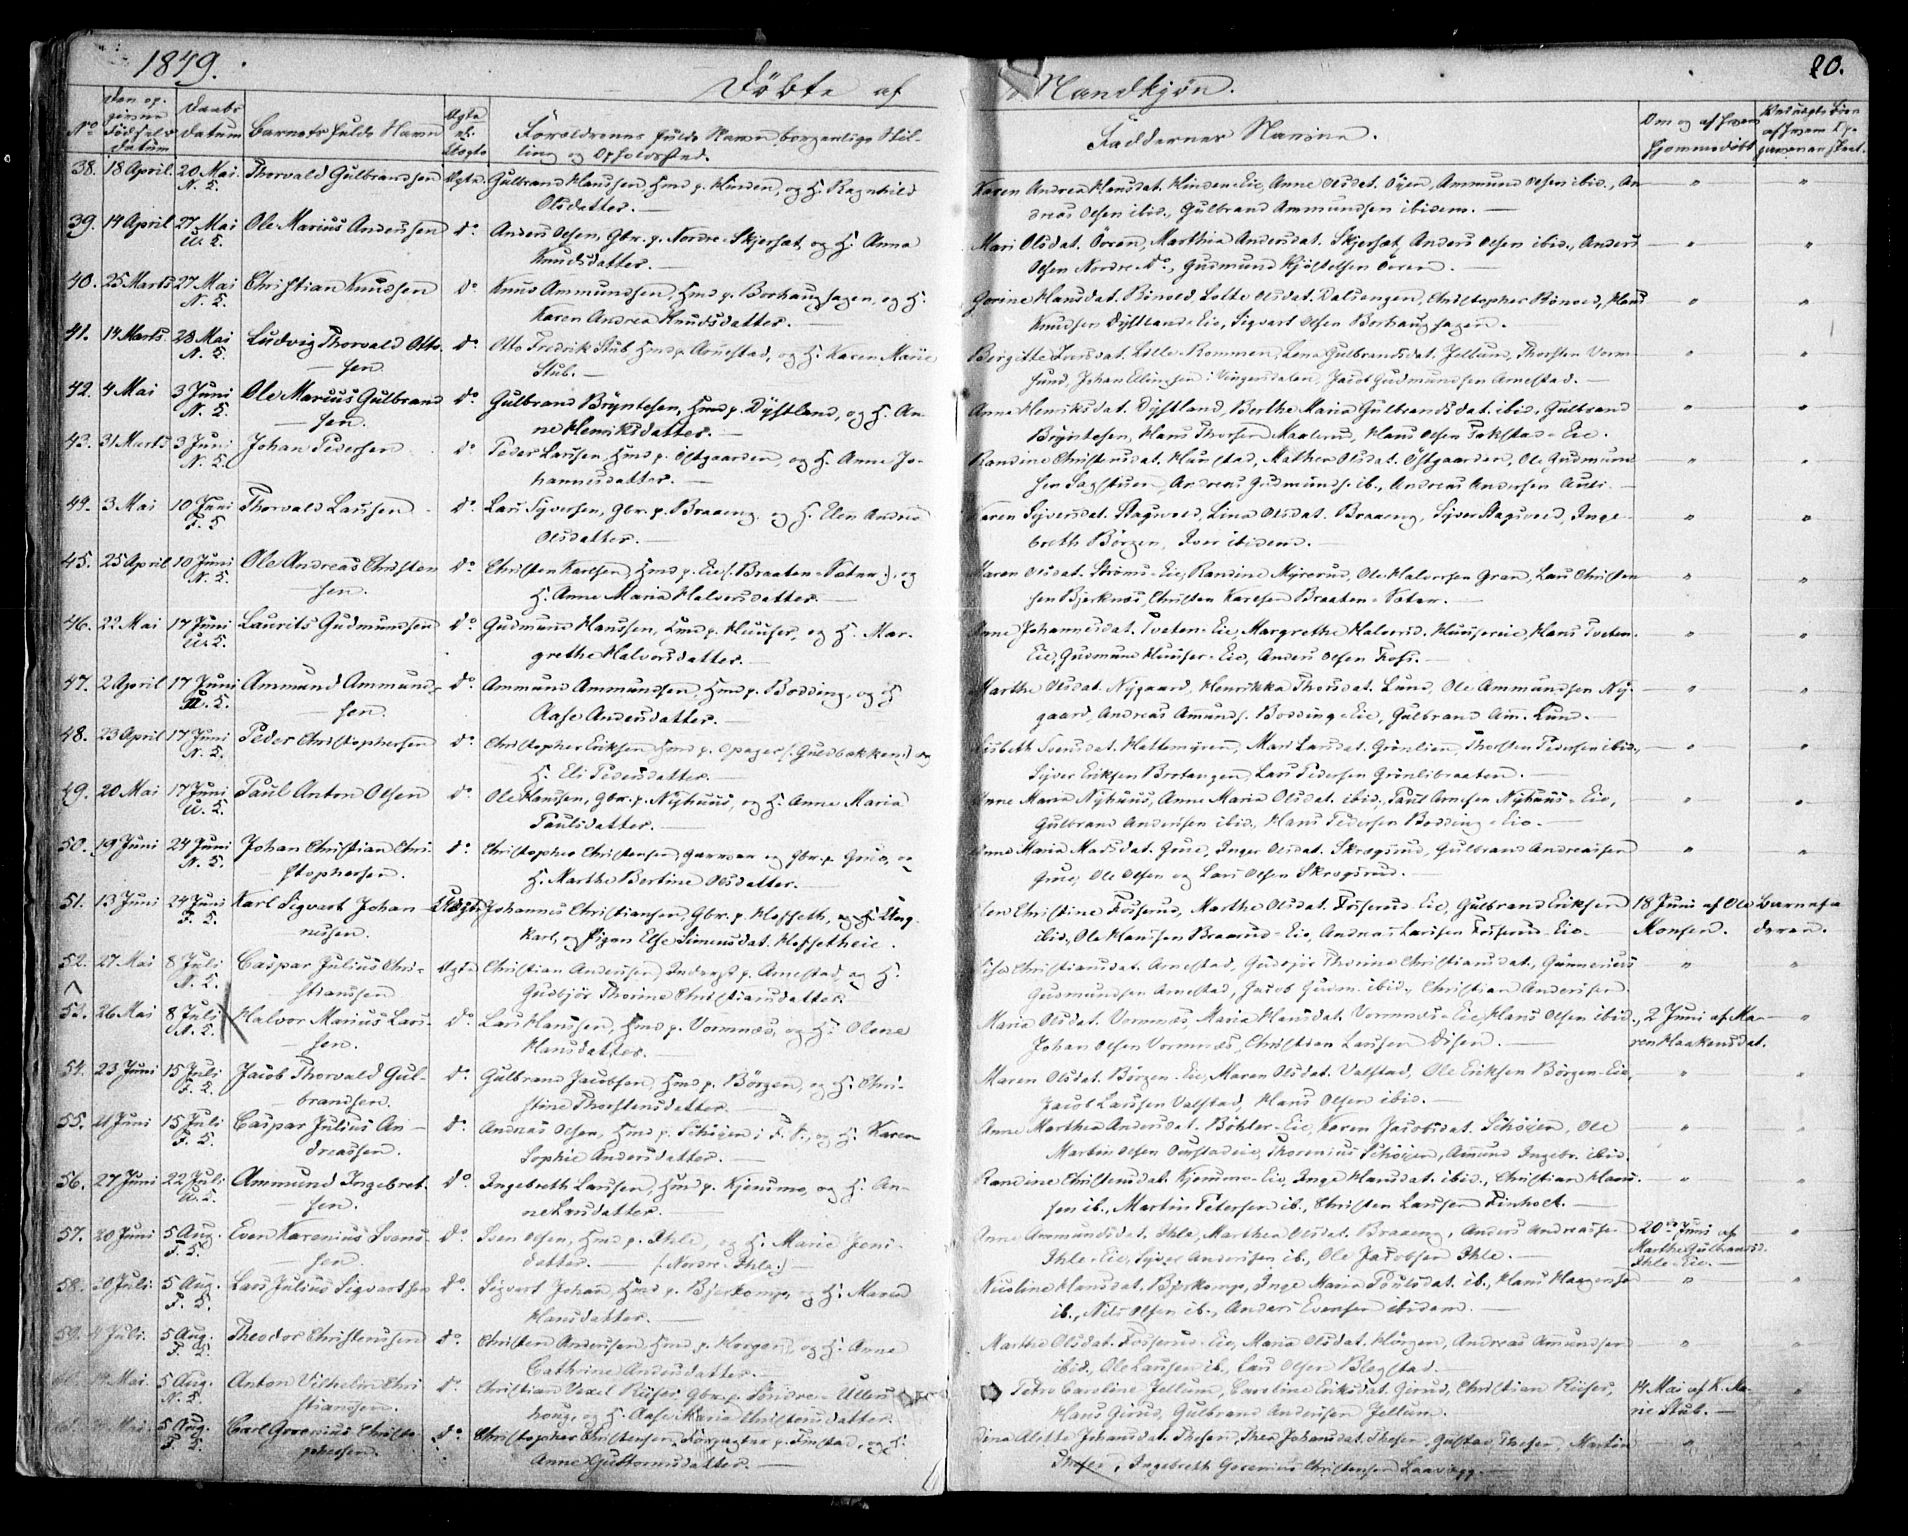 1849.
Döbte af
Mandkjøn.
20.
No
Den op-
givne
Födsels
datum
Daabs
datum
Barnets fulde Navn
Ægte
el.
Uægte
Forældrenes fulde Navn, borgerlige Stil-
ling og Opholdssted.
Faddernes Navne.
Om og af hvem
hjemmedøbt
38. 18 April. 20 Mai. N. S. Thorvald Gulbrandsen Ægte. Gulbrand Hanssen, Hmd p. Hinden, og H. Ragnhild
Olsdatter. —
Karen Andrea Hansdat. Hinden-Eie, Anne Olsdat. Ammund Olsen ibid., An-
dreas Olsen ibid., Gulbrand Ammundsen ibidem. —
39. 14 April 27 Mai U. S. Ole Marius Andersen do. Anders Olsen, Gbr. p. Nordre-Skjersæt, og H. Anne
Knudsdatter. —
Mari Olsdat. Ören, Marthea Andersdat. Skjersæt, Anders Olsen ibid., Anders
Olsen Nordre-do., Gudmund Ören. —
40. 25 Marts 27 Mai N. S. Christian Knudsen do Knud Ammundsen, Hmd p. Borhaughagen, og H.
Karen Andrea Knudsdatter. —
Gorine Hansdat. Lotte Olsdat. Dalsengen, Christopher Hans
Knudsen Dystland-Eie, Sigvart Olsen Borhaughagen. —
41. 14 Marts. 28 Mai N. S. Ludvig Thorvald Otto-
sen do. Otto Fredrik Stub, Hmd p. Arnestad, og H. Karen Marie
Stub. —
Birgitte Iversdat. Lille-Rommen, Lena Gulbrandsdat. Jellum, Thorsten Vorm-
sund, Johan Ellingsen i Vingersdalen, Jacob Gudmundsen Arnestad. —
42. 4 Mai 3 Juni N. S. Ole Marius Gulbrand-
sen. do. Gulbrand Bryntesen, Hmd p. Dystland, og H. An-
ne Henriksdatter. —
Anne Henriksdat. Dystland, Berthe Maria Gulbrandsdat. ibid., Gulbrand
Bryntesen, Hans Thorsen Maalerud, Hans Olsen Fakstad-Eie.
43. 31 Marts 3 Juni N. S. Johan Pedersen do Peder Larssen, Hmd p. Østgaarden, og H. Anne Jo-
hannesdatter. —
Randine Christensdat. Hanstad, Mathea Olsdat. Østgaarden, Ole Gudmund-
sen Sagstuen, Andreas Gudmunds. ib., Andreas Andersen Auli. —
44. 3 Mai 10 Juni F. S Thorvald Larssen do. Lars Syversen, Gbr. p. Braaeng, og H. Elen Andrea
Olsdatter. —
Karen Syversdat. Stagvold, Lina Olsdat. Braaeng, Syver Stagvold, Inge-
breth Börgen, Iver ibidem. —
45. 25 April 10 Juni N. S. Ole Andreas Christen-
sen. do. Christen Karlsen, Hmd p. Eie (: Braaten-Sæter :), og
H. Anne Maria Halvorsdatter. —
Maren Olsdat. Ströms-Eie, Randine Myrerud, Ole Halvorsen Gran, Lars Christen-
sen Bjerknes, Christen Karlsen Braaten-Sæter. —
46. 22 Mai 17 Juni U. S. Laurits Gudmundsen do. Gudmund Hanssen, Hmd p. Huuser, og H. Mar-
grethe Halvorsdatter. —
Anne Johannesdat. Tveten-Eie, Margrethe Halvorsd. Huusereie, Hans Tveten-
Eie, Gudmund Huuser-Eie, Anders Olsen Foss. —
47. 2 April 17 Juni U. S. Ammund Ammund-
sen. do. Ammund Ammundsen, Hmd p. Bodding, og H.
Aase Andersdatter. —
Marthe Olsdat. Nygaard, Henrikka Thorsdat. Lund, Ole Ammundsen Ny-
gaard, Andreas Amunds. Bodding-Eie, Gulbrand Am. Lund. —
48. 23 April 17 Juni N. S. Peder Christophersen do. Christopher Eriksen Hmd p. Opager (: Guldbakken :) og
H. Eli Pedersdatter. —
Lisbeth Svensdat. Hattemyren, Mari Larsdat. Grönlien, Thorsten Pedersen ibid.,
Syver Eriksen Brotangen, Lars Pedersen Grönlibraaten. —
49. 20 Mai 17 Juni U. S. Paul Anton Olsen do. Ole Hanssen, Gbr. p. Nyhuus, og H. Anne Maria
Paulsdatter. —
Anne Maria Nyhuus, Anne Maria Olsdat. ibid., Paul Arnesen Nyhuus-Eie,
Gulbrand Andersen ibid., Hans Pedersen Bodding-Eie. —
50. 19 Juni 24 Juni N. S. Johan Christian Chri-
stophersen. do. Christopher Christensen, Garver og Gbr. p. Grue, og
H. Marthe Bertine Olsdatter. —
Anne Maria Madsdat. Grue, Inger Olsdat. Skrogsrud, Gulbrand Andreassen
Grue, Ole Olsen og Lars Olsen Skrogsrud. —
51. 13 Juni 24 Juni F. S. Karl Sigvart Johan-
nesen. Uægte Johannes Christiansen, Gbr. p. Hofseth, og H. Ung-
karl, og Pigen Else Simensdat. Hofsetheie.
Elen Christine Fosserud, Marthe Olsdat. Fosserud-Eie, Gulbrand Eriksen
ibid., Ole Hanssen Braarud-Eie, Andreas Larssen Fosserud-Eie. —
18 Juni af Ole
Monsen.
Barnefa-
deren.
52. 27 Mai 8 Juli N. S. Caspar Julius Chri-
stianssen Ægte Christian Andersen Inderst p. Arnestad, og H.
Gudbjör Thorine Christiansdatter. —
Lise Christiansdat. Arnestad, Gudbjör Thorine Christiansdat., Gunnerius
Gudmundsen Arnestad, Jacob Gudm. ibid., Christian Andersen.
53. 26 Mai 8 Juli N. S. Halvor Marius Lars-
sen. do. Lars Hanssen, Hmd p. Vormnæs, og H. Olene
Hansdatter. —
Maria Olsdat. Vormnæs, Maria Hansdat. Vormnæs-Eie, Hans Olsen ibid.,
Johan Olsen Vormnæs, Christian Larssen Disen. —
2 Juni af Ma-
ren Haakensdat.
54. 23 Juni 15 Juli F. S. Jacob Thorvald Gul-
brandsen. do. Gulbrand Jacobsen, Hmd p. Börgen, og H. Chri-
stine Thorstensdatter. —
Maren Olsdat. Börgen-Eie, Maren Olsdat. Valstad, Ole Eriksen Börgen-Eie,
Jacob Larssen Valstad, Hans Olsen ibid. —
55. 21 Juni 15 Juli F. S. Caspar Julius An-
dreassen. do. Andreas Olsen, Hmd p. Schöien i F. S., og H. Karen
Sophie Andersdatter. —
Anne Marthea Andersdat. Böhler-Eie, Karen Jacobsdat. Schöien, Ole
Martin Olsen Thorenius Schöien, Amund Ingebr. ibid.
56. 27 Juni 22 Juli U. S. Ammund Ingebret-
sen. do. Ingebreth Larssen, Hmd p. Kjerumo, og H. An-
ne Larsdatter. —
Randine Christensdat. Kjerumo-Eie, Inge Hansdat. ibid., Christian Hans-
sen ib., Martin Petersen ib., Christen Larssen Finholt. —
57. 20 Juni 5 Aug. F. S. Even Karenius Svend-
sen. do. Sven Olsen, Hmd p. Ihle, og H. Marie Jens-
datter. — (: Nordre-Ihle :) —
Anne Ammundsdat. Ihle, Marthea Olsdat. Braaeng, Anders Andreassen
Ihle-Eie, Syver Andersen ib., Ole Jacobsen Ihle. —
20de Juni af
Marthe Gulbrandsd.
Ihle-Eie. —
58. 20 Juli. 5 Aug. F. S. Lars Julius Sigvartsen do. Sigvart Johans. Hmd p. Bjerkomp, og H. Maria
Hansdatter. —
Nicoline Hansdat. Bjerkomp, Inge Maria Poulsdat. ib., Hans Haagensen
ib., Nils Olsen ib., Anders Evensen ibidem. —
59. 4 Juli. 5 Aug. F. S. Theodor Christensen do. Christen Andersen, Hmd p. Horgen, og H. Anne
Cathrine Andersdatter. —
Marthe Olsdat. Fosserud-Eie, Maria Olsdat. Horgen, Andreas Amundsen
ibid., Ole Larssen ib., Lars Olsen Blegstad. —
60. Mai. 5 Aug. N. S. Anton Vilhelm Chri-
stiansen. do. Christian Vexel Riiser, Gbr. p. Söndre-Ullers-
houg, og H. Aase Maria Christensdatter.
Petro Caroline Jellum, Caroline Eriksdat. Girud, Christian Riiser,
Hans Girud, Gulbrand Andersen Jellum.
14 Mai af K. Ma-
rie Stub. —
61. Mai. 5 Aug. F. S. Carl Gorenius Christo-
phersen. do. Christopher Christensen, Forpagter p. Finstad, og H.
Anne Guttormsdatter. —
Dina Alette Johansdat. Thesen, Thea Johansdat. Thesen, Gustav Thesen, Martin
Thesen, Ingebreth Gorenius Christensen